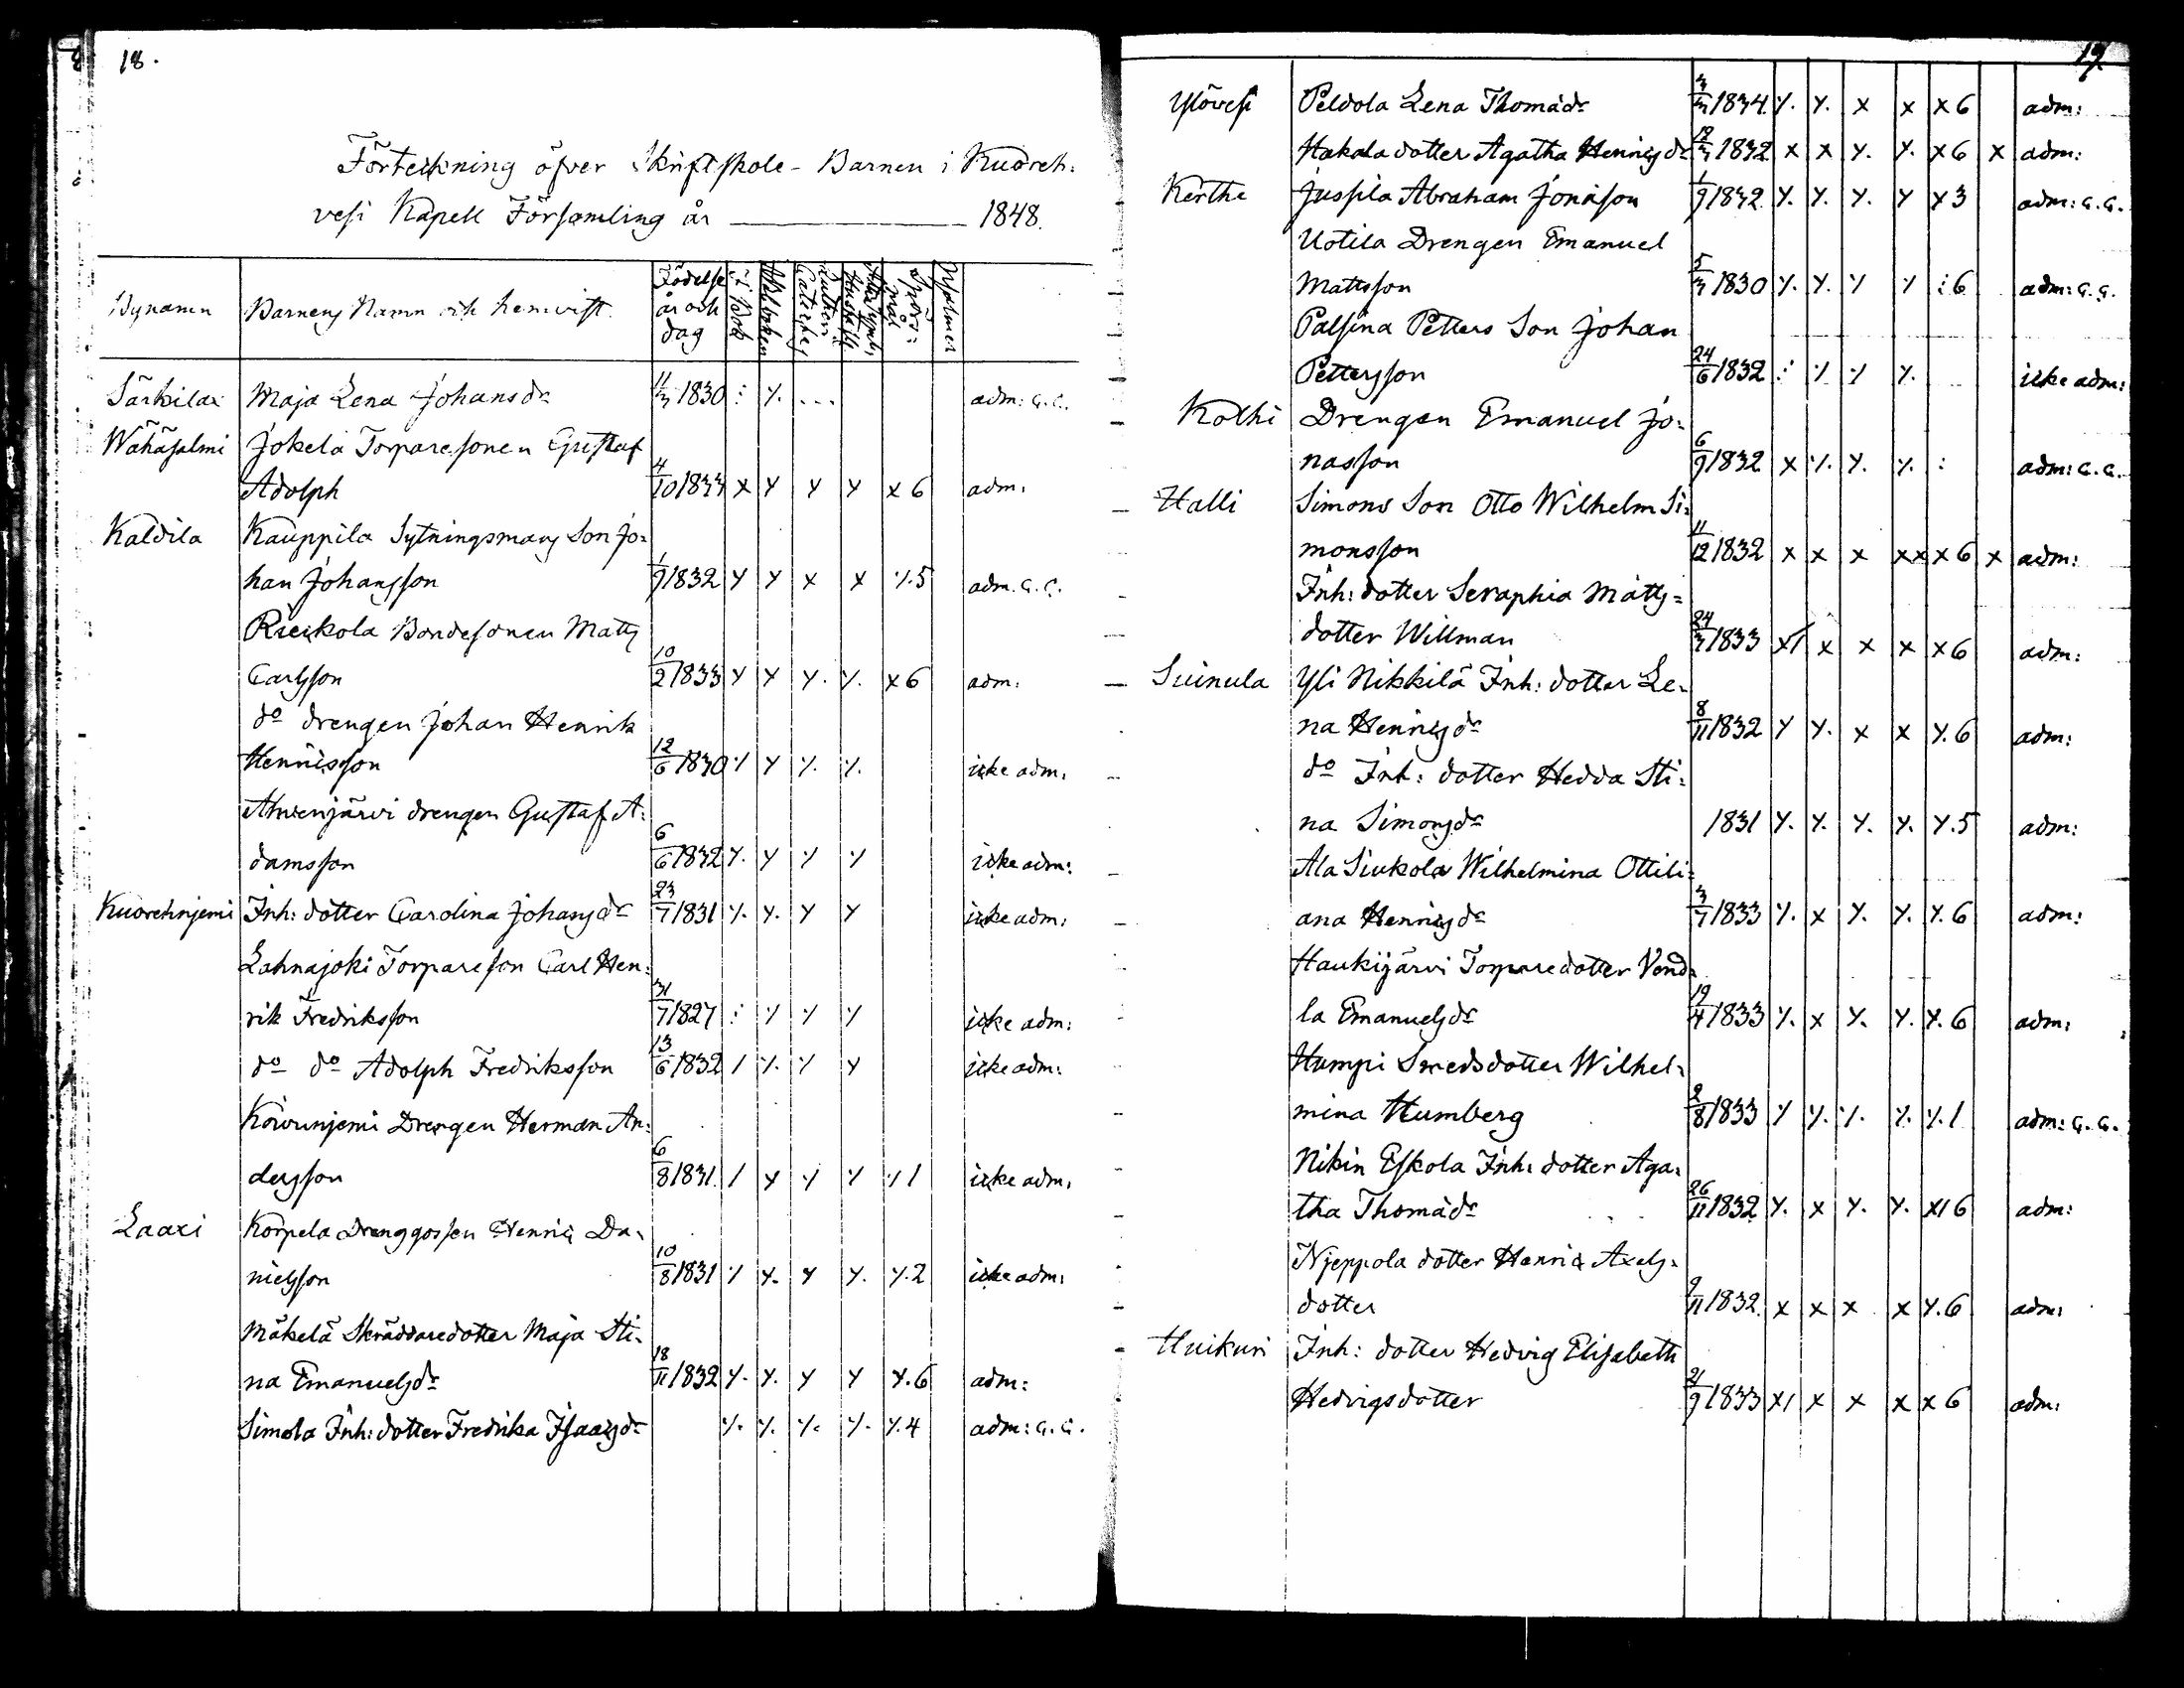 18.
Förteckning öfver Skriftskole-Barnen i Kuoreh:
vesi Kapell Församling år 1848.
Bynamn Barnens Namn och hemvist Födelse år och dag i Bok Psalmer
Särkilax Maja Lena Johansdr 11/3 1830 : y. ... adm: c.c.
Wähäsalmi Jokela Torparesonen Gustaf
Adolph 4/10 1833 x y y y x 6 adm:
Kaldila Kauppila Sytningsmans Son Jo=
han Johansson 1/9 1832 y y x x y.5 adm. c.c.
Rieskola Bondesonen Matts
Carlsson 10/2 1833 y y y. y. x 6 adm:
do drengen Johan Henrik
Henricsson 12/6 1830 y y y. y. icke adm:
Ahvenjärvi drengen Gustaf A:
damsson 6/6 1832 y. y y y icke adm:
Kuorehnjemi Inh: dotter Carolina Johansdr 23/7 1831 y. y. y y icke adm:
Lahnajoki Torpareson Carl Hen:
rik Fredriksson 31/7 1827 : y y y icke adm:
do do Adolph Fredriksson 13/6 1832 / y. y y icke adm:
Koivunjemi Drengen Herman An:
dersson 6/8 1831. / y y y y 1 icke adm:
Laaxi Korpela Drenggossen Henric Da=
nielsson 10/8 1831 y y. y y. y.2 icke adm:
Mäkelä Skräddaredotter Maja Sti=
na Emanuelsdr 18/11 1832 y. y. y y y.6 adm:
Simola Inh: dotter Fredrika Isaacsdr y. y. y. y. y.4 adm: c.c.
19.
Ylövesi Peldola Lena Thomädr 3/3 1834. y. y. x x x 6 adm:
Hakala dotter Agatha Henricsdr 12/3 1832 x x y. y. x 6 x adm:
Kerthe Jussila Abraham Jonasson 1/9 1832 y. y. y. y y 3 adm: c.c.
Uotila Drengen Emanuel
Mattsson 5/3 1830 y. y. y y : 6 adm: c.c.
Palsina Petters Son Johan
Pettersson 24/6 1832 : y y y. icke adm:
Kolhi Drengen Emanuel Jo=
nasson 6/9 1832 x y. y. y. : adm: c.c.
Halli Simons Son Otto Wilhelm Si=
monsson 11/12 1832 x x x xx x 6 x adm:
Inh: dotter Seraphia Matts=
dotter Willman 24/3 1833 x/ x x x x 6 adm:
Suinula Yli Nikkilä Inh: dotter Le=
na Henricsdr 8/11 1832 y y. x x y.6 adm:
do Inh: dotter Hedda Sti=
na Simonsdr 1831 y. y. y. y. y.5 adm:
Ala Siukola Wilhelmina Ottili=
ana Henricsdr 3/7 1833 y. x y. y. y.6 adm:
Haukijärvi Torparedotter Vend=
la Emanuelsdr 19/4 1833 y. x y. y. y.6 adm:
Humpi Smedsdotter Wilhel=
mina Humberg 2/8 1833 y y. y. y. y.1 adm: c.c.
Nikin Eskola Inh: dotter Aga=
tha Thomädr 26/11 1832 y. x y. y. x/ 6 adm:
Njeppola dotter Henrica Axels=
dotter 9/11 1832. x x x x y.6 adm:
Huikuri Inh: dotter Hedvig Elisabeth
Hedvigsdotter 21/9 1833 x/ x x x x 6 adm: